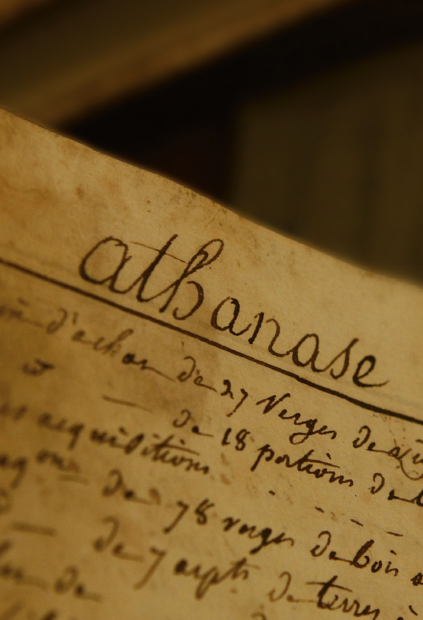 athanase
d'achat de 27 verges de
de 18 portions de
acquisitions
de 78 verges de bois
de 7 arpts de terres à
de